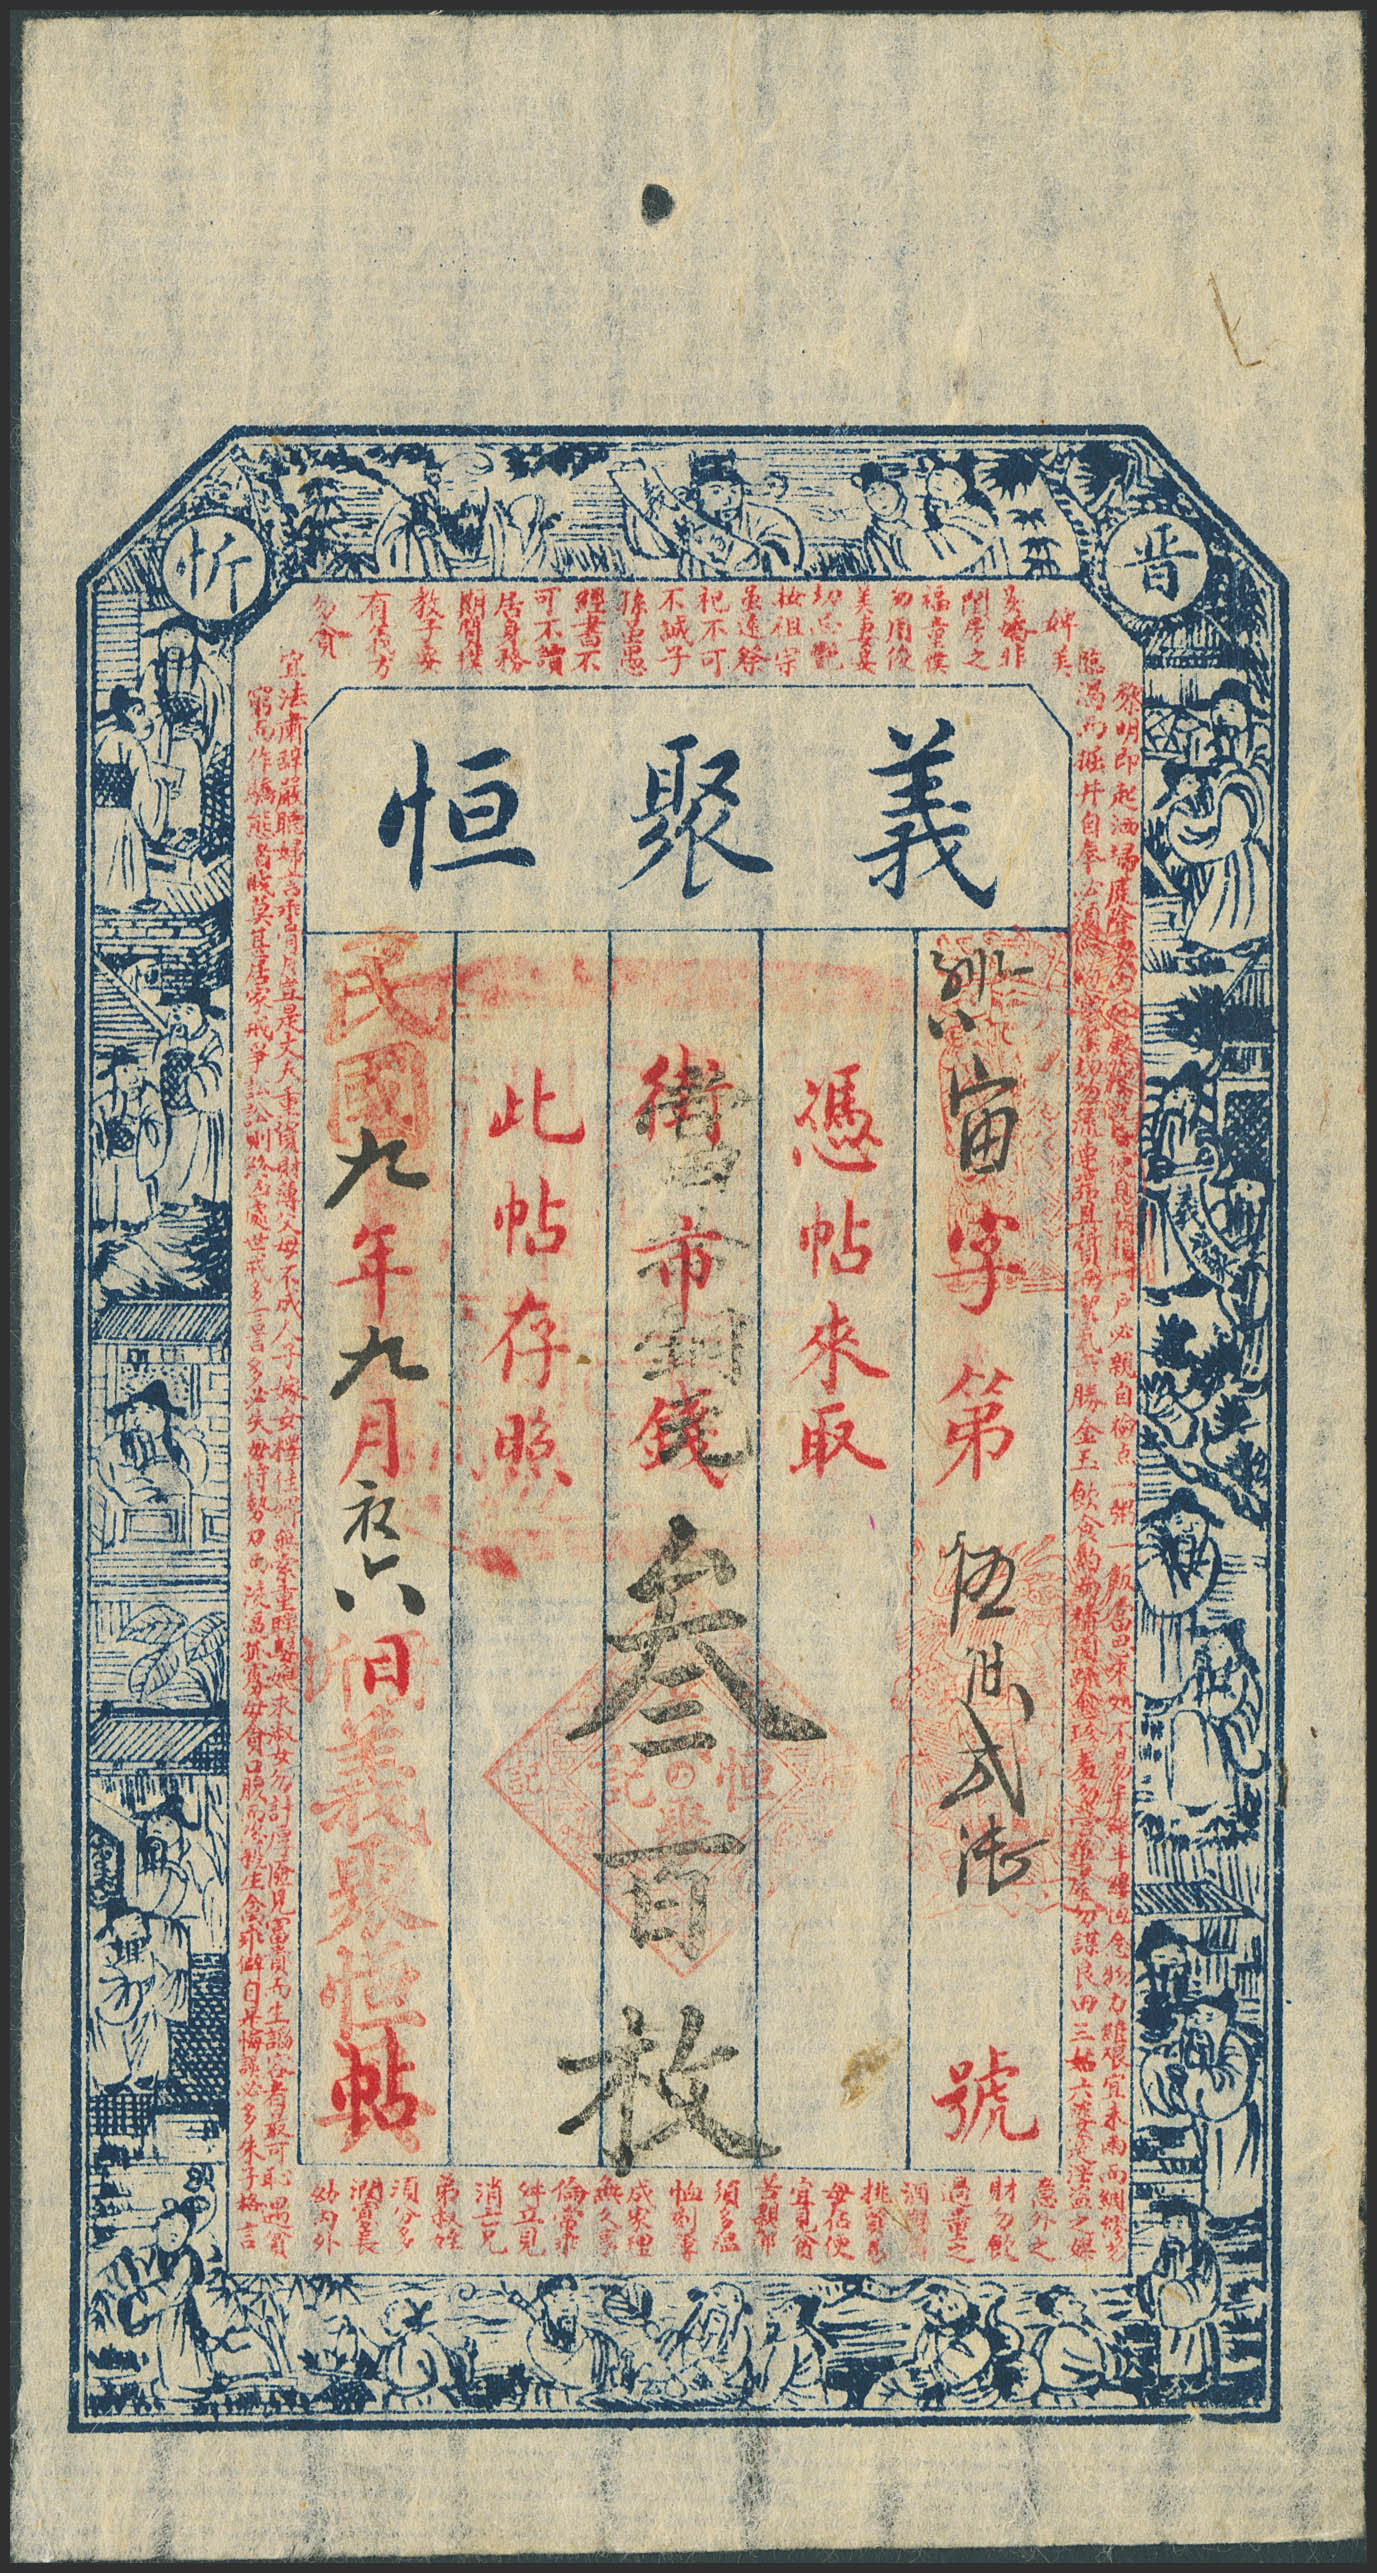 晋
忻
義聚恒
寅字第伍
貳
號
憑帖來取
街市錢叁百枚
此帖存照
民國九年九月初六日
義聚恒帖
黎明即起洒掃庭除
便息
戶必親自檢点一粥一飯當思來処不易半
半縷恒念物力維艱宜未雨而綢繆毋
臨渴而掘井自奉必須
宴客切勿流連器具質而潔瓦
勝金玉飲食約而精園蔬愈珍羞勿營華屋勿謀良田三姑六婆寔淫盗之媒
婢美
妾嬌非
閨房之
福童僕
勿用俊
美妻妾
切忌艷
妝祖宗
虽遠祭
祀不可
不誠子
孫虽愚
經書不
可不讀
居身務
期簡樸
教子要
有義方
勿貪
意外之
財勿飲
過量之
酒與肩
挑貿易
毋佔便
宜見貧
苦親鄰
須多溫
恤刻薄
成家理
無久享
倫常乖
舛立見
消亡兄
弟叔姪
須分多
潤寡長
幼內外
宜法肅辞嚴聽婦言乖骨肉豈是丈夫重貨財薄父母不成人子嫁女擇佳婿無索重聘娶媳求淑女勿計厚奩見富貴而生諂容者最可恥遇貧
窮而作驕態者賤莫甚居家戒爭訟訟則終凶處世戒多言言多必失毋恃勢力而凌逼孤寡毋貪口腹而恣殺生禽乖僻自是悔誤必多朱子格言
恒
記
義